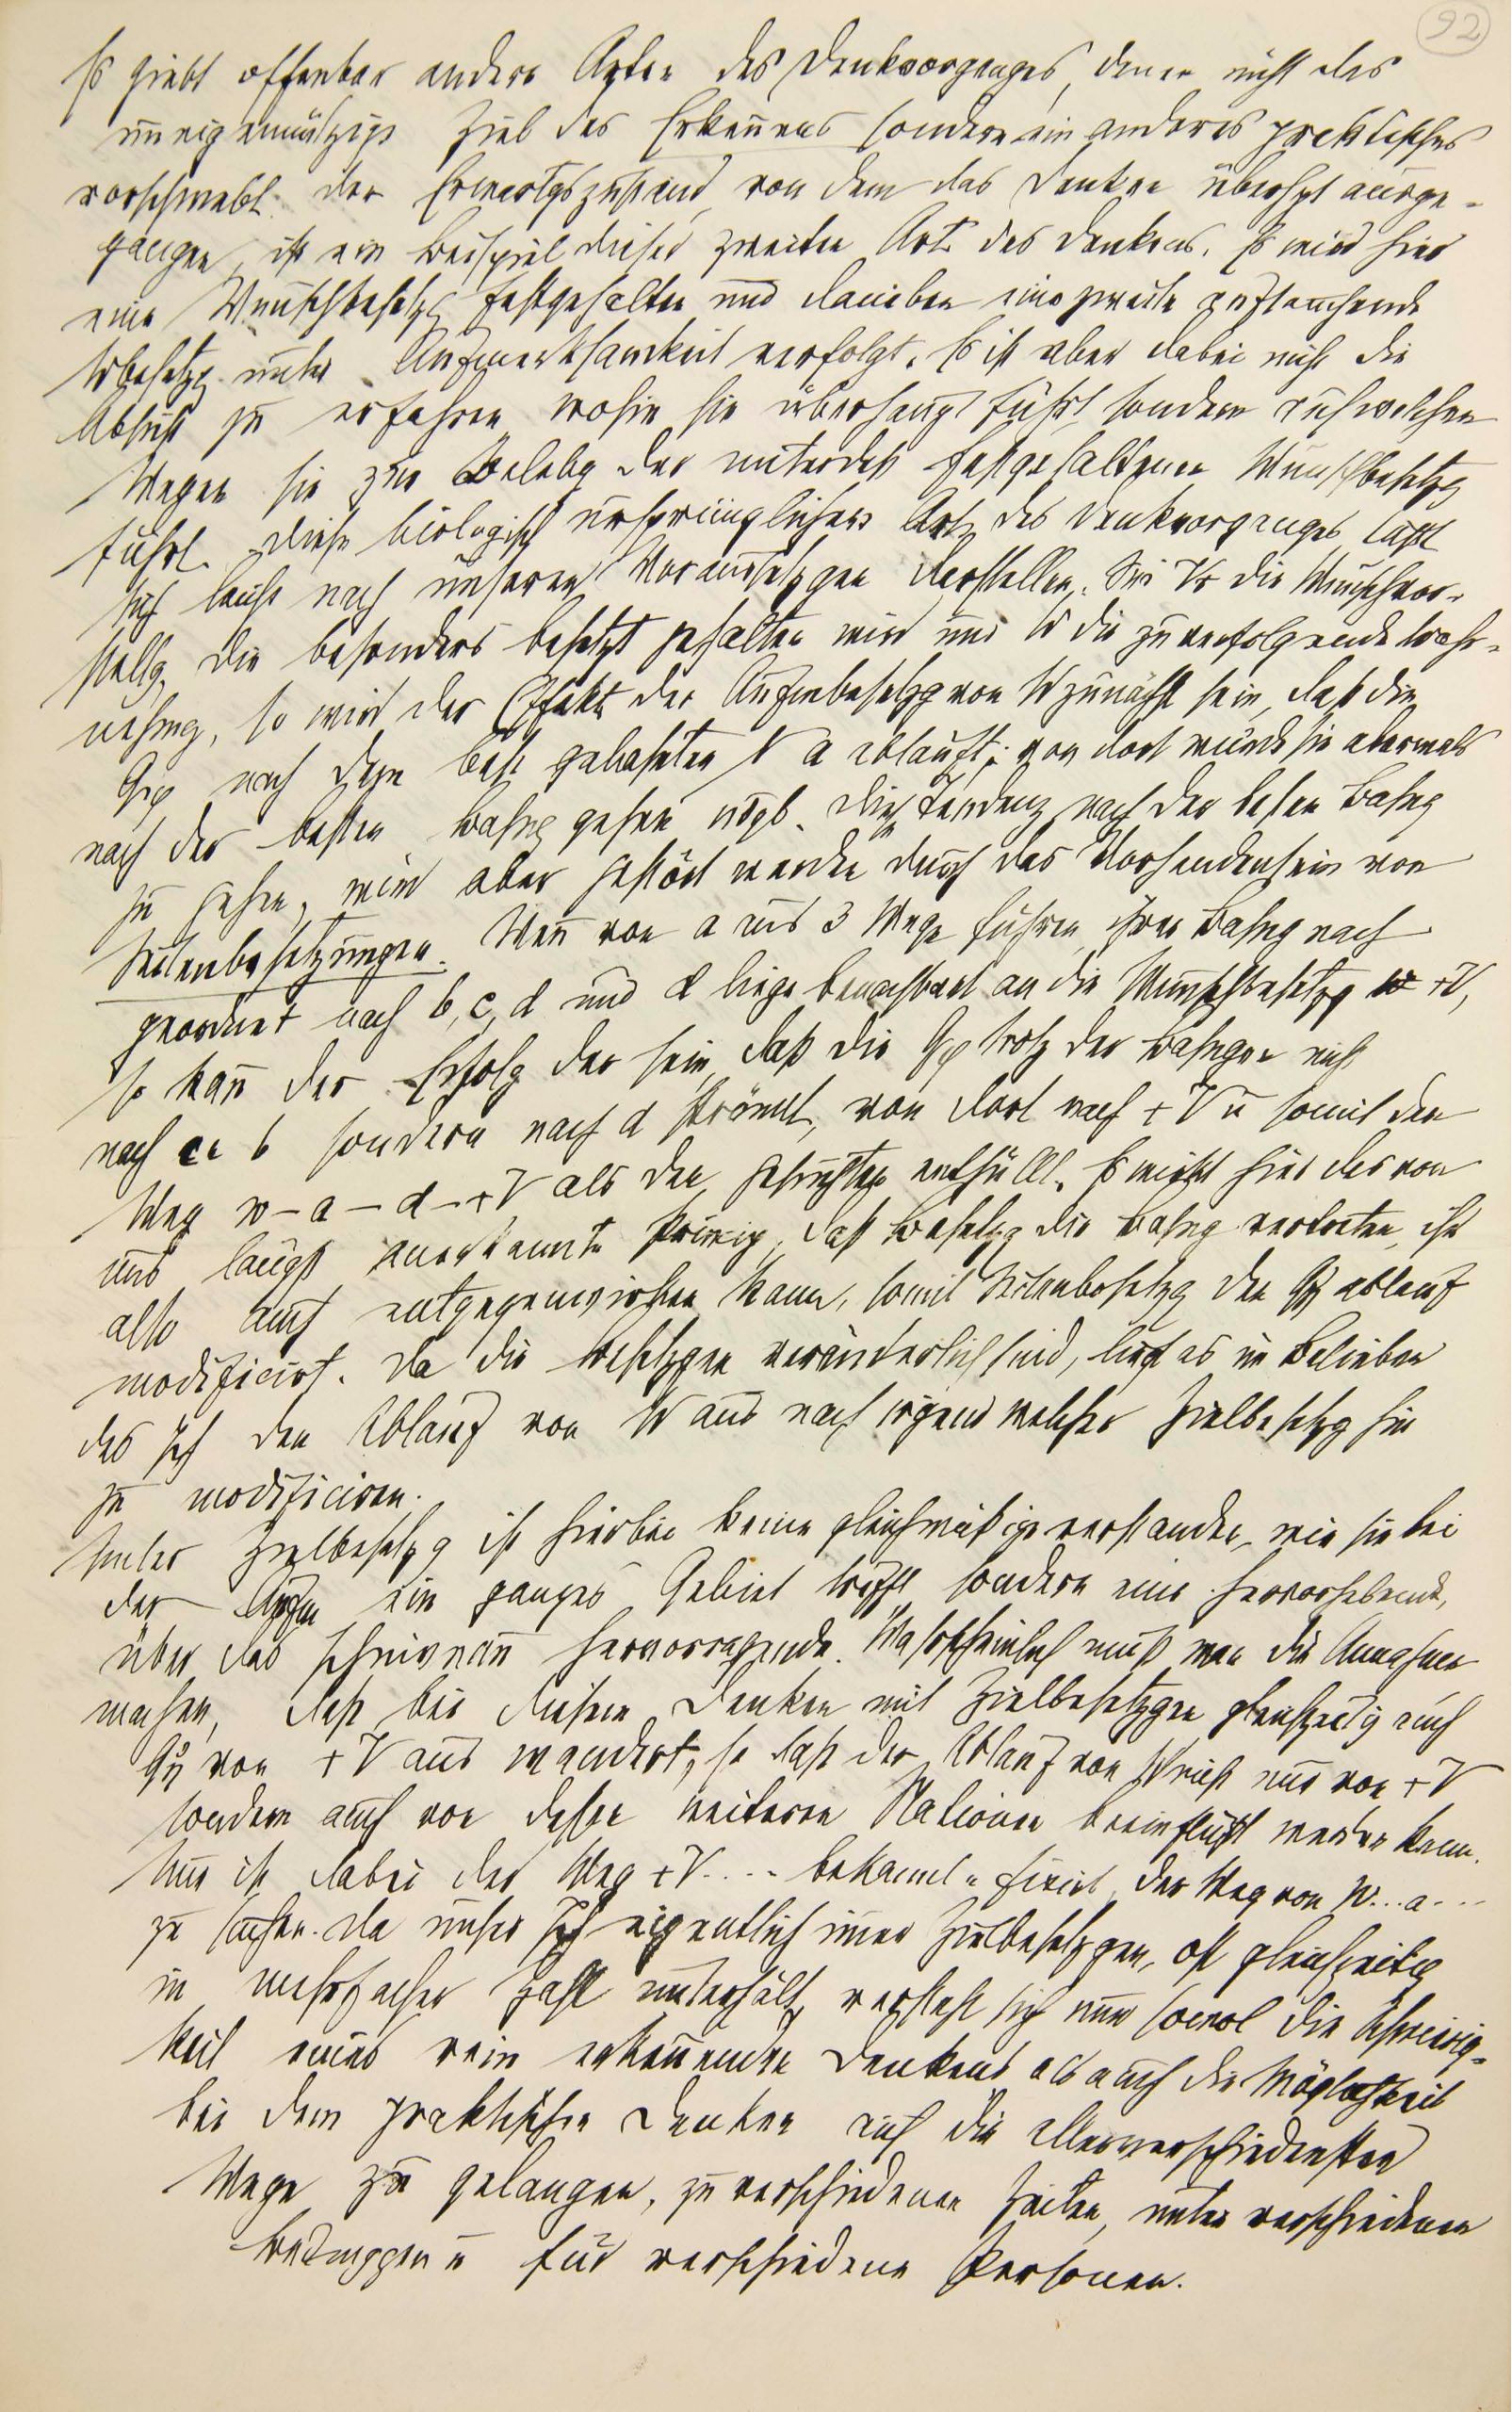 92
Es giebt offenbar andere Arten des Denkvorganges, denen nicht das
uneigennützige Ziel des Erkennens sondern ein anderes praktisches
vorschwebt. Der Erwartgszustand, von dem das Denken überhpt ausge-
gangen, ist ein Beispiel dieser zweiten Art des Denkens. Es wird hier
eine Wunschbesetzg festgehalten und daneben eine zweite auftauchende
Wbesetzg unter Aufmerksamkeit verfolgt. Es ist aber dabei nicht die
Absicht zu erfahren, wohin sie überhaupt führt, sondern auf welchen
Wegen sie zur Belebg der unterdeß festgehaltenen Wunschbesetzg
führt. Diese biologisch ursprünglichere Art des Denkvorganges läßt
sich leicht nach unseren Voraussetzgen darstellen. Sei +V die Wunschvor-
stellg, die besonders besetzt gehalten wird und W die zu verfolgende Wahr-
nehmg, so wird der Effekt der Aufmbesetzg von W zunächst sein, daß die
Qη nach dem best gebahnten N a abläuft; von dort würde sie abermals
nach der besten Bahng gehen usgl. Diese Tendenz, nach der besten Bahng
zu gehen, wird aber gestört werden durch das Vorhandensein von
Seitenbesetzungen. Wenn von a aus 3 Wege führen, ihrer Bahng nach
geordnet nach b, c, d und d liege benachbart an die Wunschbesetzg +V,
so kann der Erfolg der sein, daß die Qη trotz der Bahngen nicht
nach c u b sondern nach d strömt, von dort nach +V u somit den
Weg w – a – d – +V als den gesuchten enthüllt. Es wirkt hier das von
uns längst anerkannte Prinzip, daß Besetzg die Bahng vertreten, ihr
also auch entgegenwirken kann, somit Seitenbesetzg den Qη ablauf
modificirt. Da die Besetzgen veränderlich sind, liegt es im Belieben
des Ich den Ablauf von W aus nach irgend welcher Zielbesetzg hin
zu modificiren.
Unter Zielbesetzg ist hierbei keine gleichmäßige verstanden, wie sie bei
der Aufm ein ganzes Gebiet trifft sondern eine hervorhebende,
über das Ichniveau hervorragende. Wahrscheinlich muß man die Annahme
machen, daß bei diesem Denken mit Zielbesetzgen gleichzeitig auch
Qη von +V aus wandert, so daß der Ablauf von W nicht nur von +V
sondern auch von dessen weiteren Stationen beeinflußt werden kann.
Nur ist dabei der Weg +V.... bekannt u fixirt, der Weg von W...a...
zu suchen. Da unser Ich eigentlich immer Zielbesetzgen, oft gleichzeitig
in mehrfacher Zahl unterhält, versteht sich nun sowol die Schwierig-
keit eines rein erkennenden Denkens als auch die Möglichkeit
bei dem praktischen Denken auf die allerverschiedensten
Wege zu gelangen, zu verschiedenen Zeiten, unter verschiedenen
Bedinggen u für verschiedene Personen.